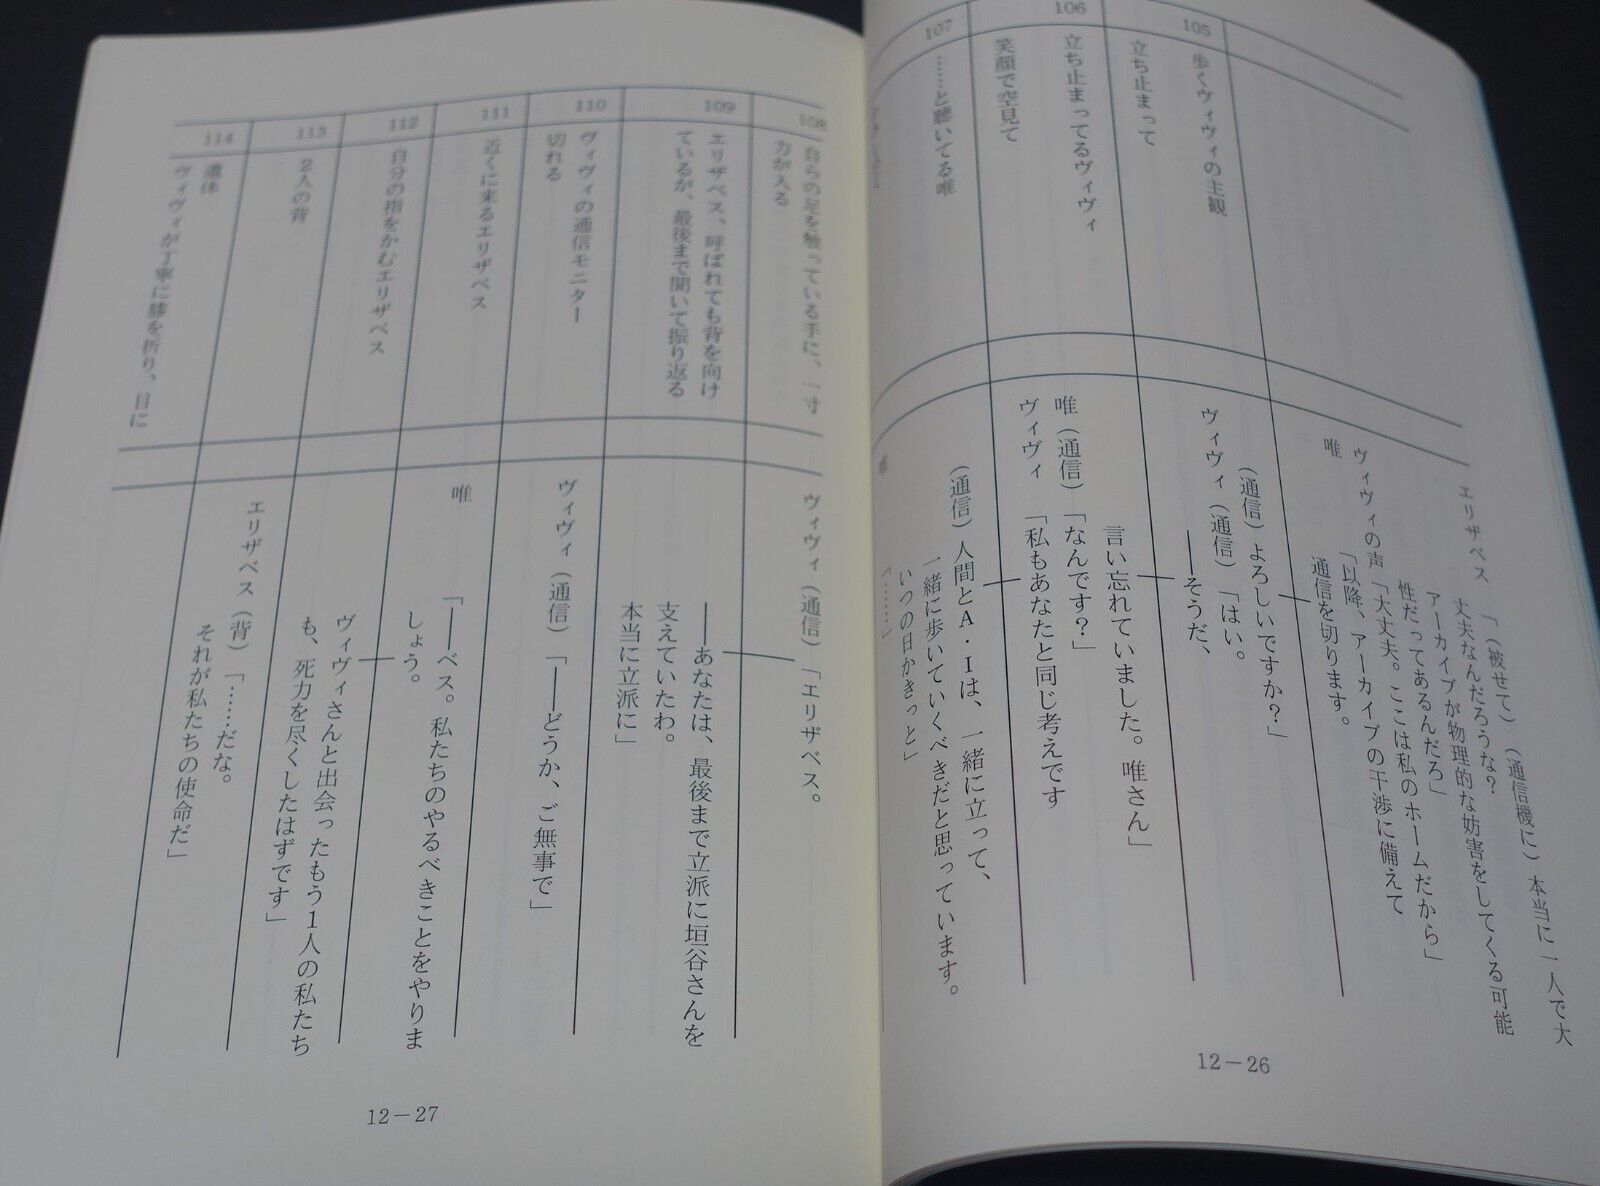 エリザベス
「(被せて)(通信機に)本当に一人で大
丈夫なんだろうな?
アーカイブが物理的な妨害をしてくる可能
性だってあるんだろ」
ヴィヴィの声「大丈夫。ここは私のホームだから」
唯
「以降、アーカイブの干渉に備えて
通信を切ります。
(通信)よろしいですか?」
105
歩くヴィヴィの主観
ヴィヴィ(通信)「はい。
――そうだ、
立ち止まって
言い忘れていました。唯さん」
106
立ち止まってるヴィヴィ
唯(通信)「なんです?」
ヴィヴィ「私もあなたと同じ考えです
笑顔で空見て
(通信)人間とA・Iは、一緒に立って、
一緒に歩いていくべきだと思っています。
いつの日かきっと」
107
……と聴いてる唯
唯
「……」
12－26
108
自らの足を触っている手に、一寸
力が入る
ヴィヴィ(通信)「エリザベス。
109
エリザベス、呼ばれても背を向け
ているが、最後まで聞いて振り返る
――あなたは、最後まで立派に垣谷さんを
支えていたわ。
本当に立派に」
110
ヴィヴィの通信モニター
切れる
ヴィヴィ(通信)「――どうか、ご無事で」
111
近くに来るエリザベス
唯
「――ベス。私たちのやるべきことをやりま
しょう。
112
自分の指をかむエリザベス
ヴィヴィさんと出会ったもう1人の私たち
も、死力を尽くしたはずです」
113
2人の背
エリザベス(背)「……だな。
それが私たちの使命だ」
114
遺体
ヴィヴィが丁寧に膝を折り、目に